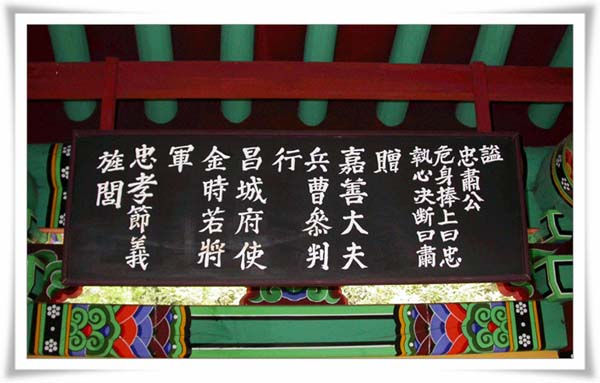 謚
忠肅公
危身捧上曰忠
執心决断曰肅
贈
嘉善大夫
兵曹叅判
行
昌城府使
金時若將
軍
忠孝節義
旌閭